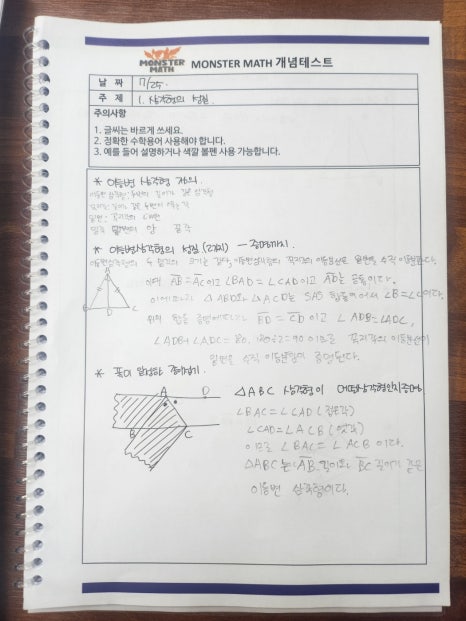 MONSTER MATH
MONSTER MATH 개념테스트
날 짜 7/25.
주 제 1. 삼각형의 성질.
주의사항
1. 글씨는 바르게 쓰세요.
2. 정확한 수학용어 사용해야 합니다.
3. 예를 들어 설명하거나 색깔 볼펜 사용 가능합니다.
* 이등변 삼각형 정의.
이등변 삼각형: 두변의 길이가 같은 삼각형
밑변: 꼭지각의 대변
밑각: 밑변의 양 끝각
* 이등변삼각형의 성질 (2가지) - 증명까지.
이등변삼각형의 두 밑각의 크기는 같다. 이등변삼각형의 꼭지각의 이등분선은 밑변을 수직 이등분한다.
A
B
D
C
이때 AB = AC이고 ∠BAD = ∠CAD이고 AD는 공통이다.
△ABD와 △ACD는 SAS 합동이어서 ∠B=∠C이다.
위의 합동 증명에 BD = CD 이고 ∠ADB=∠ADC,
∠ADB+∠ADC=180, 180÷2=90 이므로 꼭지각의 이등분선이
밑변을 수직 이등분함이 증명된다.
* 폭이 일정한 종이접기.
A
D
B
C
△ABC 삼각형이 어떤삼각형인지증명
∠BAC=∠CAD (접은각)
∠CAD=∠ACB (엇각)
이므로 ∠BAC=∠ACB 이다.
△ABC는 AB 길이와 BC 길이가 같은
이등변 삼각형이다.